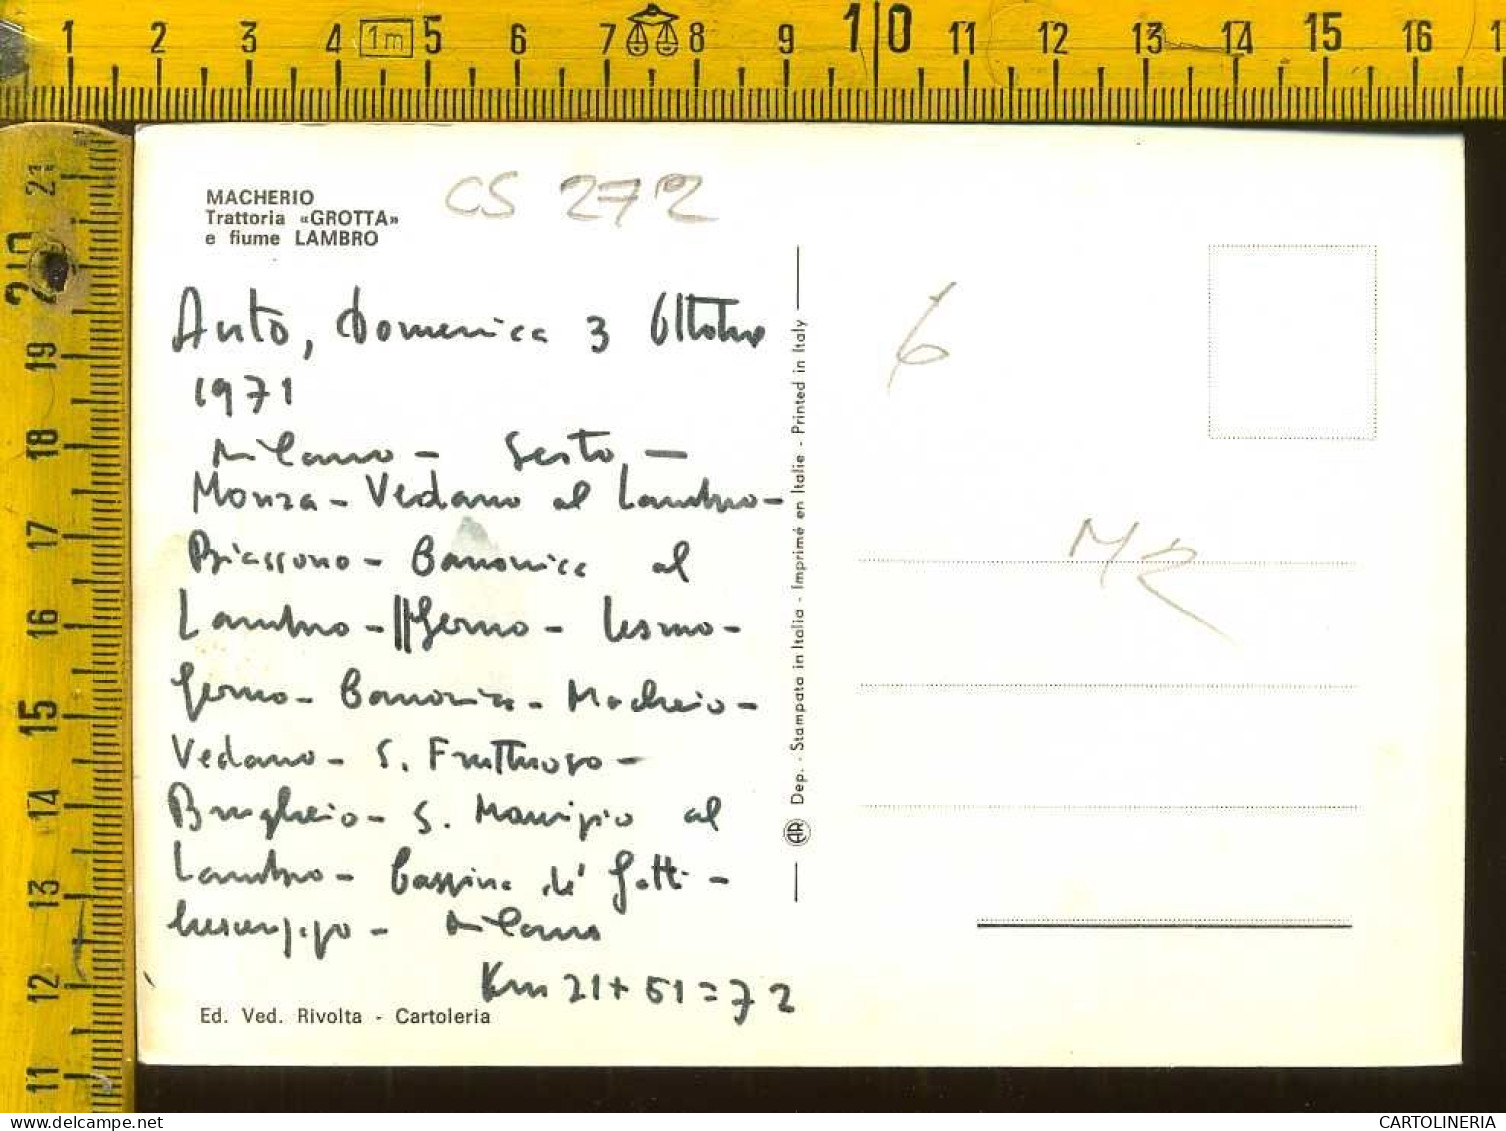 1 2 3 4 1m 5 6 7 8 9 10 11 12 13 14 15 16 1
21
20
19
18
17
16
15
14
13
12
11
MACHERIO
Trattoria «GROTTA»
e fiume LAMBRO
CS 272
Auto, Domenica 3 Ottobre
1971
Milano - Sesto -
Monza - Vedano al Lambro -
Biassono - Canonica al
Lambro - || Gerno - Lesmo -
Gerno - Canonica - Macherio -
Vedano - S. Fruttuoso -
Brugherio - S. Maurizio al
Lambro - Cassina de' Gatti -
Milano
Km 21 + 51 = 72
Ed. Ved. Rivolta - Cartoleria
AR Dep. - Stampata in Italia - Imprimé en Italie - Printed in Italy
6
MR
CARTOLINERIA